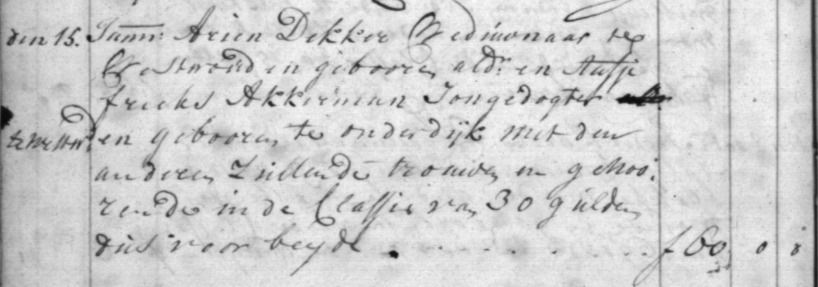 den 15. Arien Dekker Weduwnaar te
Westwoud en gebooren ald:r en Aafje
frerks Akkerman Jongedogter
en gebooren te onderdijk met den
anderen Zullende trouwen en gehoo:
rende in de Classie van 30 gulden
dus voor beyde . . . . . . . . f 60 0 0